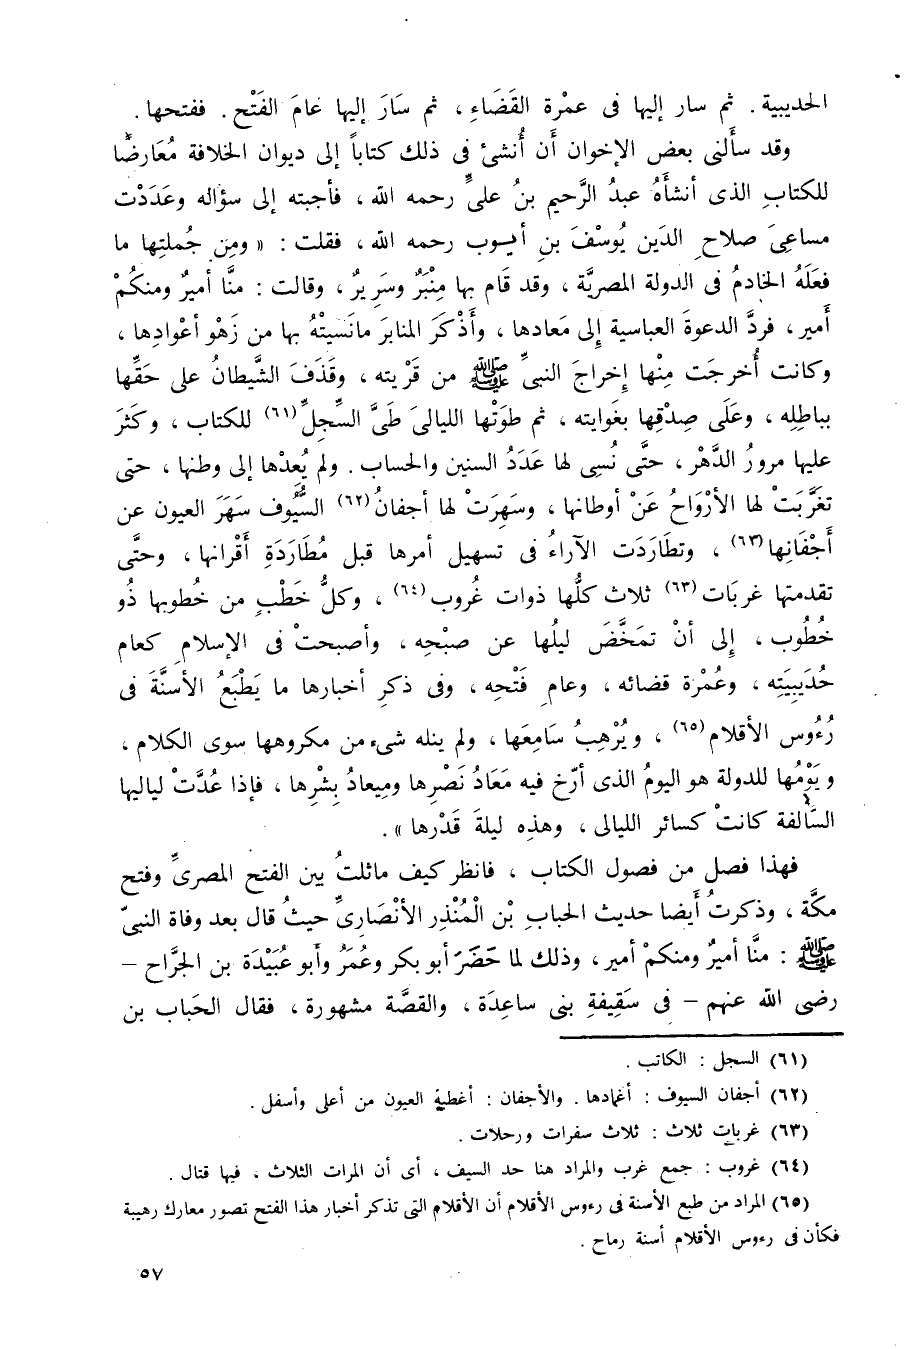 الحديبية . ثم سار إليها فى عمْرة القَضَاءِ ، ثم سَارَ إليها عَامَ الفَتْح . ففتحها .
وقد سأَلنى بعض الإخوان أَن أُنشئ فى ذلك كتاباً إلى ديوان الخلافة مُعَارضًا
للكتابِ الذى أنشأَهُ عبدُ الرَّحيم بنُ علىٍّ رحمه الله ، فأجبته إلى سؤاله وعَدَدْت
مساعىَ صلاح الدَين يُوسُفَ بنِ أيوب رحمه الله ، فقلت : « ومِن جُملتِها ما
فعَلَهُ الخادمُ فى الدولة المصريَّة ، وقد قَام بها مِنْبَرٌ وسَرِيرٌ ، وقالت : منَّا أميرٌ ومنكُمْ
أَمير ، فردَّ الدعوةَ العباسية إِلى مَعادها ، وأَذْكَرَ المنابرَ مانَسيَتْهُ بها من زَهْو أعْوادِها ،
وكانت أُخرجَت مِنْها إخراجَ النبىِّ ﷺ من قَرْيته ، وقَذَفَ الشَّيطانُ على حَقِّها
بباطِلِه ، وعَلَى صِدْقِها بغَوايته ، ثم طوَتْها الليالىَ طَىَّ السِّجلِّ (٦١) للكتاب ، وكَثرَ
عليها مرورُ الدَّهْر ، حتَّى نُسِى لها عَدَدُ السنين والحساب . ولم يُعِدْها إلى وطنها ، حتى
تغَرَّبَتْ لها الأرْوَاحُ عَنْ أوطانها ، وسَهِرَتْ لها أجفانُ (٦٢) السُّيُوف سَهَرَ العيون عن
أَجْفَانِها (٦٣) ، وتطَارَدَت الآراءُ فى تسهيل أمرها قبل مُطَارَدَةِ أَقْرانها ، وحتَّى
تقدمتها غربَات (٦٣) ثلاث كلُّها ذوات غُروب (٦٤) ، وكلُّ خَطْبٍ من خُطوبها ذُو
خُطُوب ، إِلى أنْ تمَخَّضَ ليلُها عن صبْحِه ، وأصبحتْ فى الإسلامِ كعام
حُدَيبيَتِه ، وعُمْرة قضائه ، وعامِ فَتْحِه ، وفى ذكرِ أخبارها ما يَطْبَعُ الأسنَّةَ فى
رُءُوس الأقلام (٦٥) ، ويُرْهِبُ سَامِعَها ، ولم ينله شىء من مكروهها سوى الكلام ،
ويَوْمُها للدولة هو اليومُ الذى أرّخ فيه مَعَادُ نَصْرِها ومِيعادُ بِشْرِها ، فإذا عُدَّتْ لياليها
السَّالفة كانتْ كسائر الليالى ، وهذِه ليلةَ قَدْرها » .
فهذا فصل من فصول الكتاب ، فانظر كيف ماثلتُ بين الفتح المصرىِّ وفتح
مكَّة ، وذكرتُ أَيضا حديث الحبابِ بْن الْمُنْذِر الأنْصَارىِّ حيثُ قال بعد وفاة النبىّ
ﷺ : منَّا أميرٌ ومنكمْ أمير ، وذلك لما حَضَرَ أبو بكر وعُمَرُ وأَبو عُبَيْدَة بن الجرَّاح –
رضى الله عنهم – فى سَقِيفةِ بنى ساعِدَة ، والقصَّة مشهورة ، فقال الحَباب بن
(٦١) السجل : الكاتب .
(٦٢) أجفان السيوف : أغمادها . والأجفان : أغطية العيون من أعلى وأسفل .
(٦٣) غربات ثلاث : ثلاث سفرات ورحلات .
(٦٤) غروب : جمع غرب والمراد هنا حد السيف ، أى أن المرات الثلاث ، فيها قتال .
(٦٥) المراد من طبع الأسنة فى رءوس الأقلام أن الأقلام التى تذكر أخبار هذا الفتح تصور معارك رهيبة
فكأن فى رءوس الأقلام أسنة رماح .
٥٧